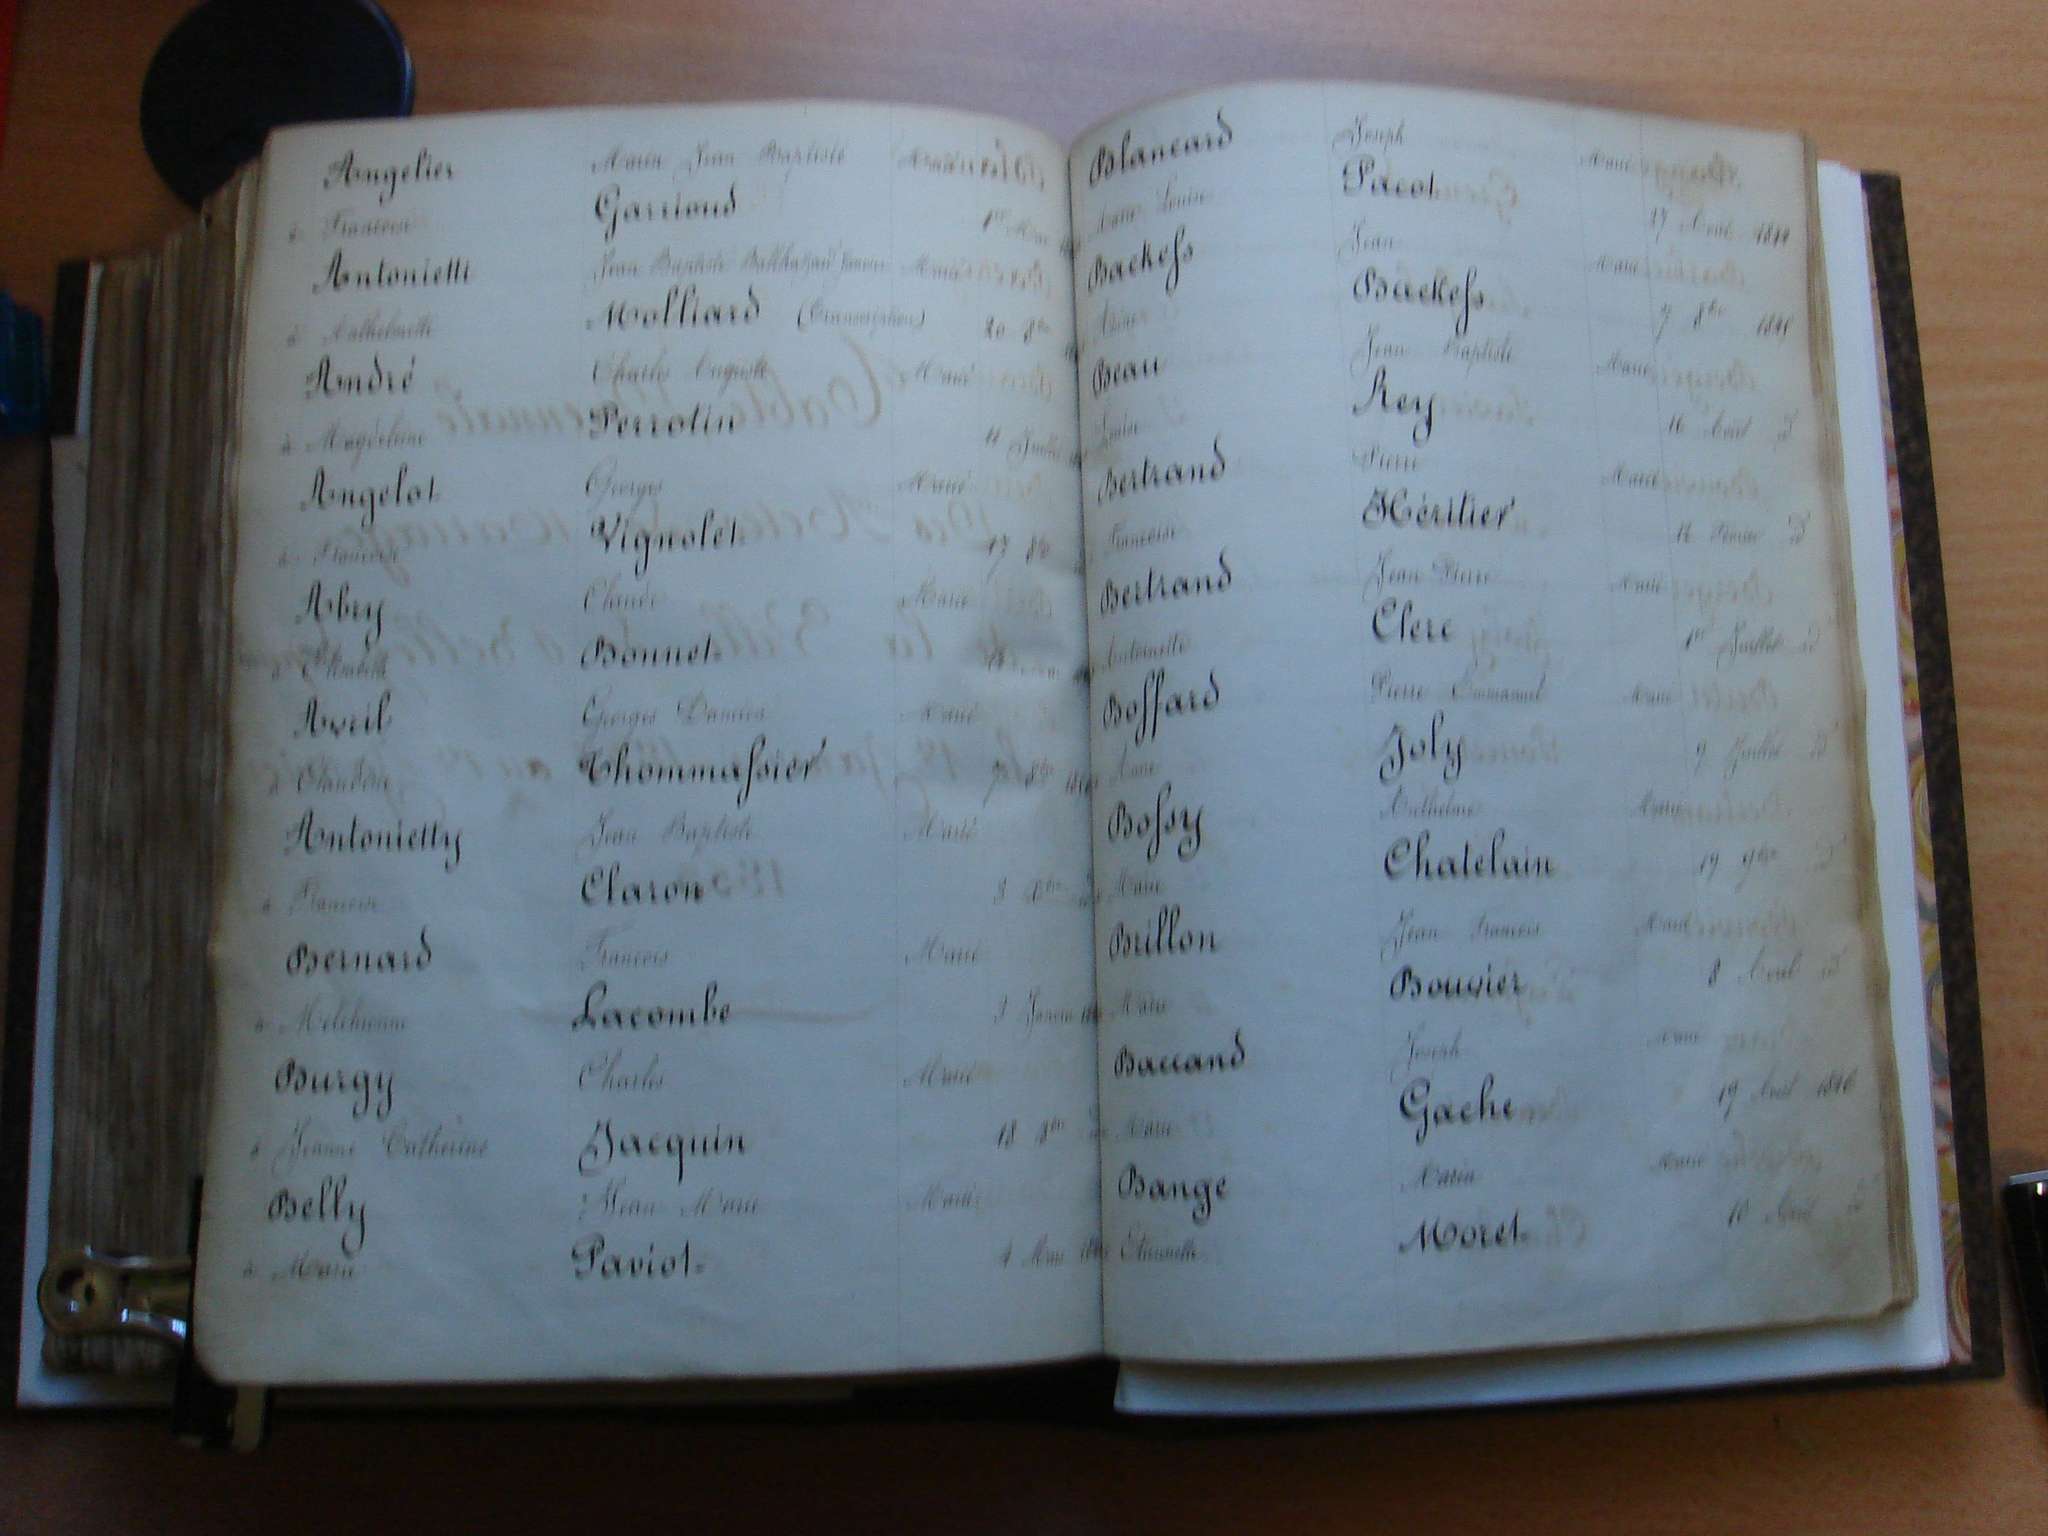 Angelier Marin Jean Baptiste Marié
à Francoise Garrioud 1er Mai
Antonietti Jean Baptiste Balthazard Marié
à Anthelmette Molliard (Transcription) 20 8bre
André Charles Auguste Marié
à Magdeleine Perrotin 11 Juillet
Angelot Georges Marié
à Francoise Vignolet 17 8bre
Abry Claude Marié
à Elisabeth Bonnet
Avril Georges Damien Marié
à Claudine Thommassier 7 8bre
Antonietty Jean Baptiste Marié
à Francoise Claron 3 Xbre
Bernard Francois Marié
à Melchionne Lacombe 7 Janvier
Burgy Charles Marié
à Jeanne Catherine Jacquin 18 8bre
Belly Jean Marie Marié
à Marie Paviot 4 Mai
Blancard Joseph Marié
Marie Louise Pacot 27 Aout
Backess Jean Marié
Backess 7 8bre
Beau Jean Baptiste Marié
Louise Rey 16 Aout d°
Bertrand Pierre Marié
Francoise Héritier 12 Février d°
Bertrand Jean Pierre Marié
Antoinette Clerc 1er Juillet d°
Boffard Pierre Emmanuel Marié
Joly 9 Juillet d°
Bossy Anthelme Marié
Marie Chatelain 19 9bre d°
Brillon Jean Francois Marié
Marie Bouvier 8 Avril d°
Baccand Joseph Marié
Marie Gache 19 Aout 1816
Bange Marin Marié
Etiennette Moret 10 Avril d°